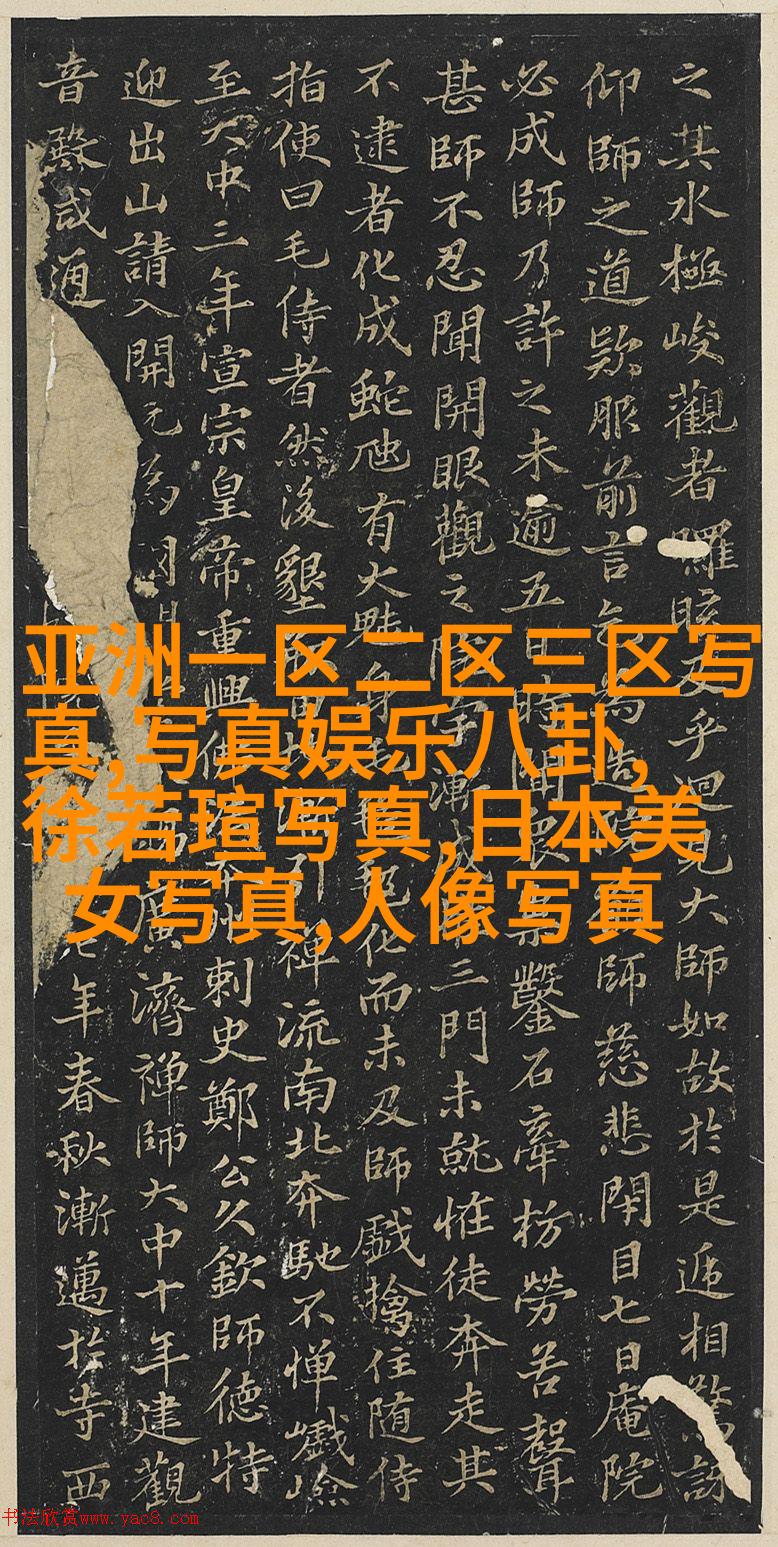 之其水極峻觀者眩及乎迴見大師如故於是遞相驚訝
仰師之道欵服前言師慈悲閉目七日庵院
必成師乃許之未逾五日時聞鑿石牽枋勞苦聲
甚師不忍聞開眼觀之漸成三門未就恠徒奔走其
不逮者化成蛇虺有大魅身化而未及師戲擒住随侍
指使曰毛侍者然後墾引禪流南北奔馳不憚巇嶮
至大中三年宣宗皇帝重興佛刺史鄭公久欽師德特
迎出山請入開元為國廣濟禪師大中十年建觀
音殿咸通七年春秋漸邁於寺西
亚洲一区二区三区写
真,写真娱乐八卦,
徐若瑄写真,日本美
女写真,人像写真
书法欣赏www.yac8.com